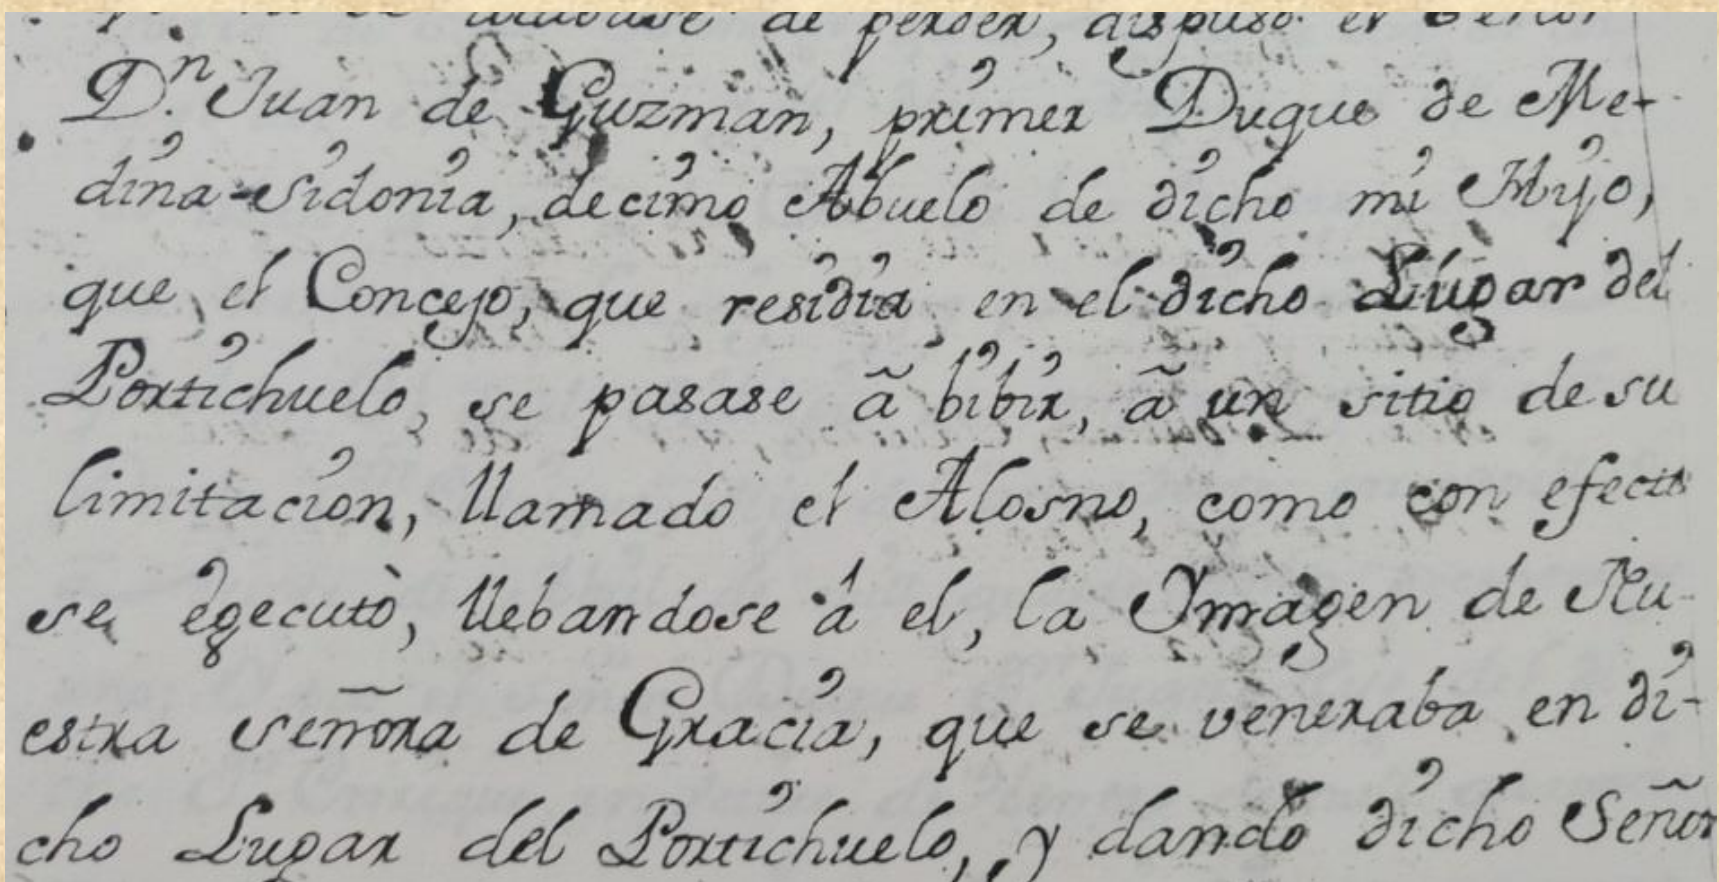 de perder, dispuso el Señor
D.n Juan de Guzman, primer Duque de Me-
dina-Sidonia, decimo Abuelo de dicho mi Hijo,
que el Concejo, que residia en el dicho Lugar del
Portichuelo, se pasase ã bibir, ã un sitio de su
limitacion, llamado el Alosno, como con efecto
se egecutò, llebandose á el, la Ymagen de Nu-
estra Señora de Gracia, que se veneraba en di-
cho Lugar del Portichuelo, y dando dicho Señor